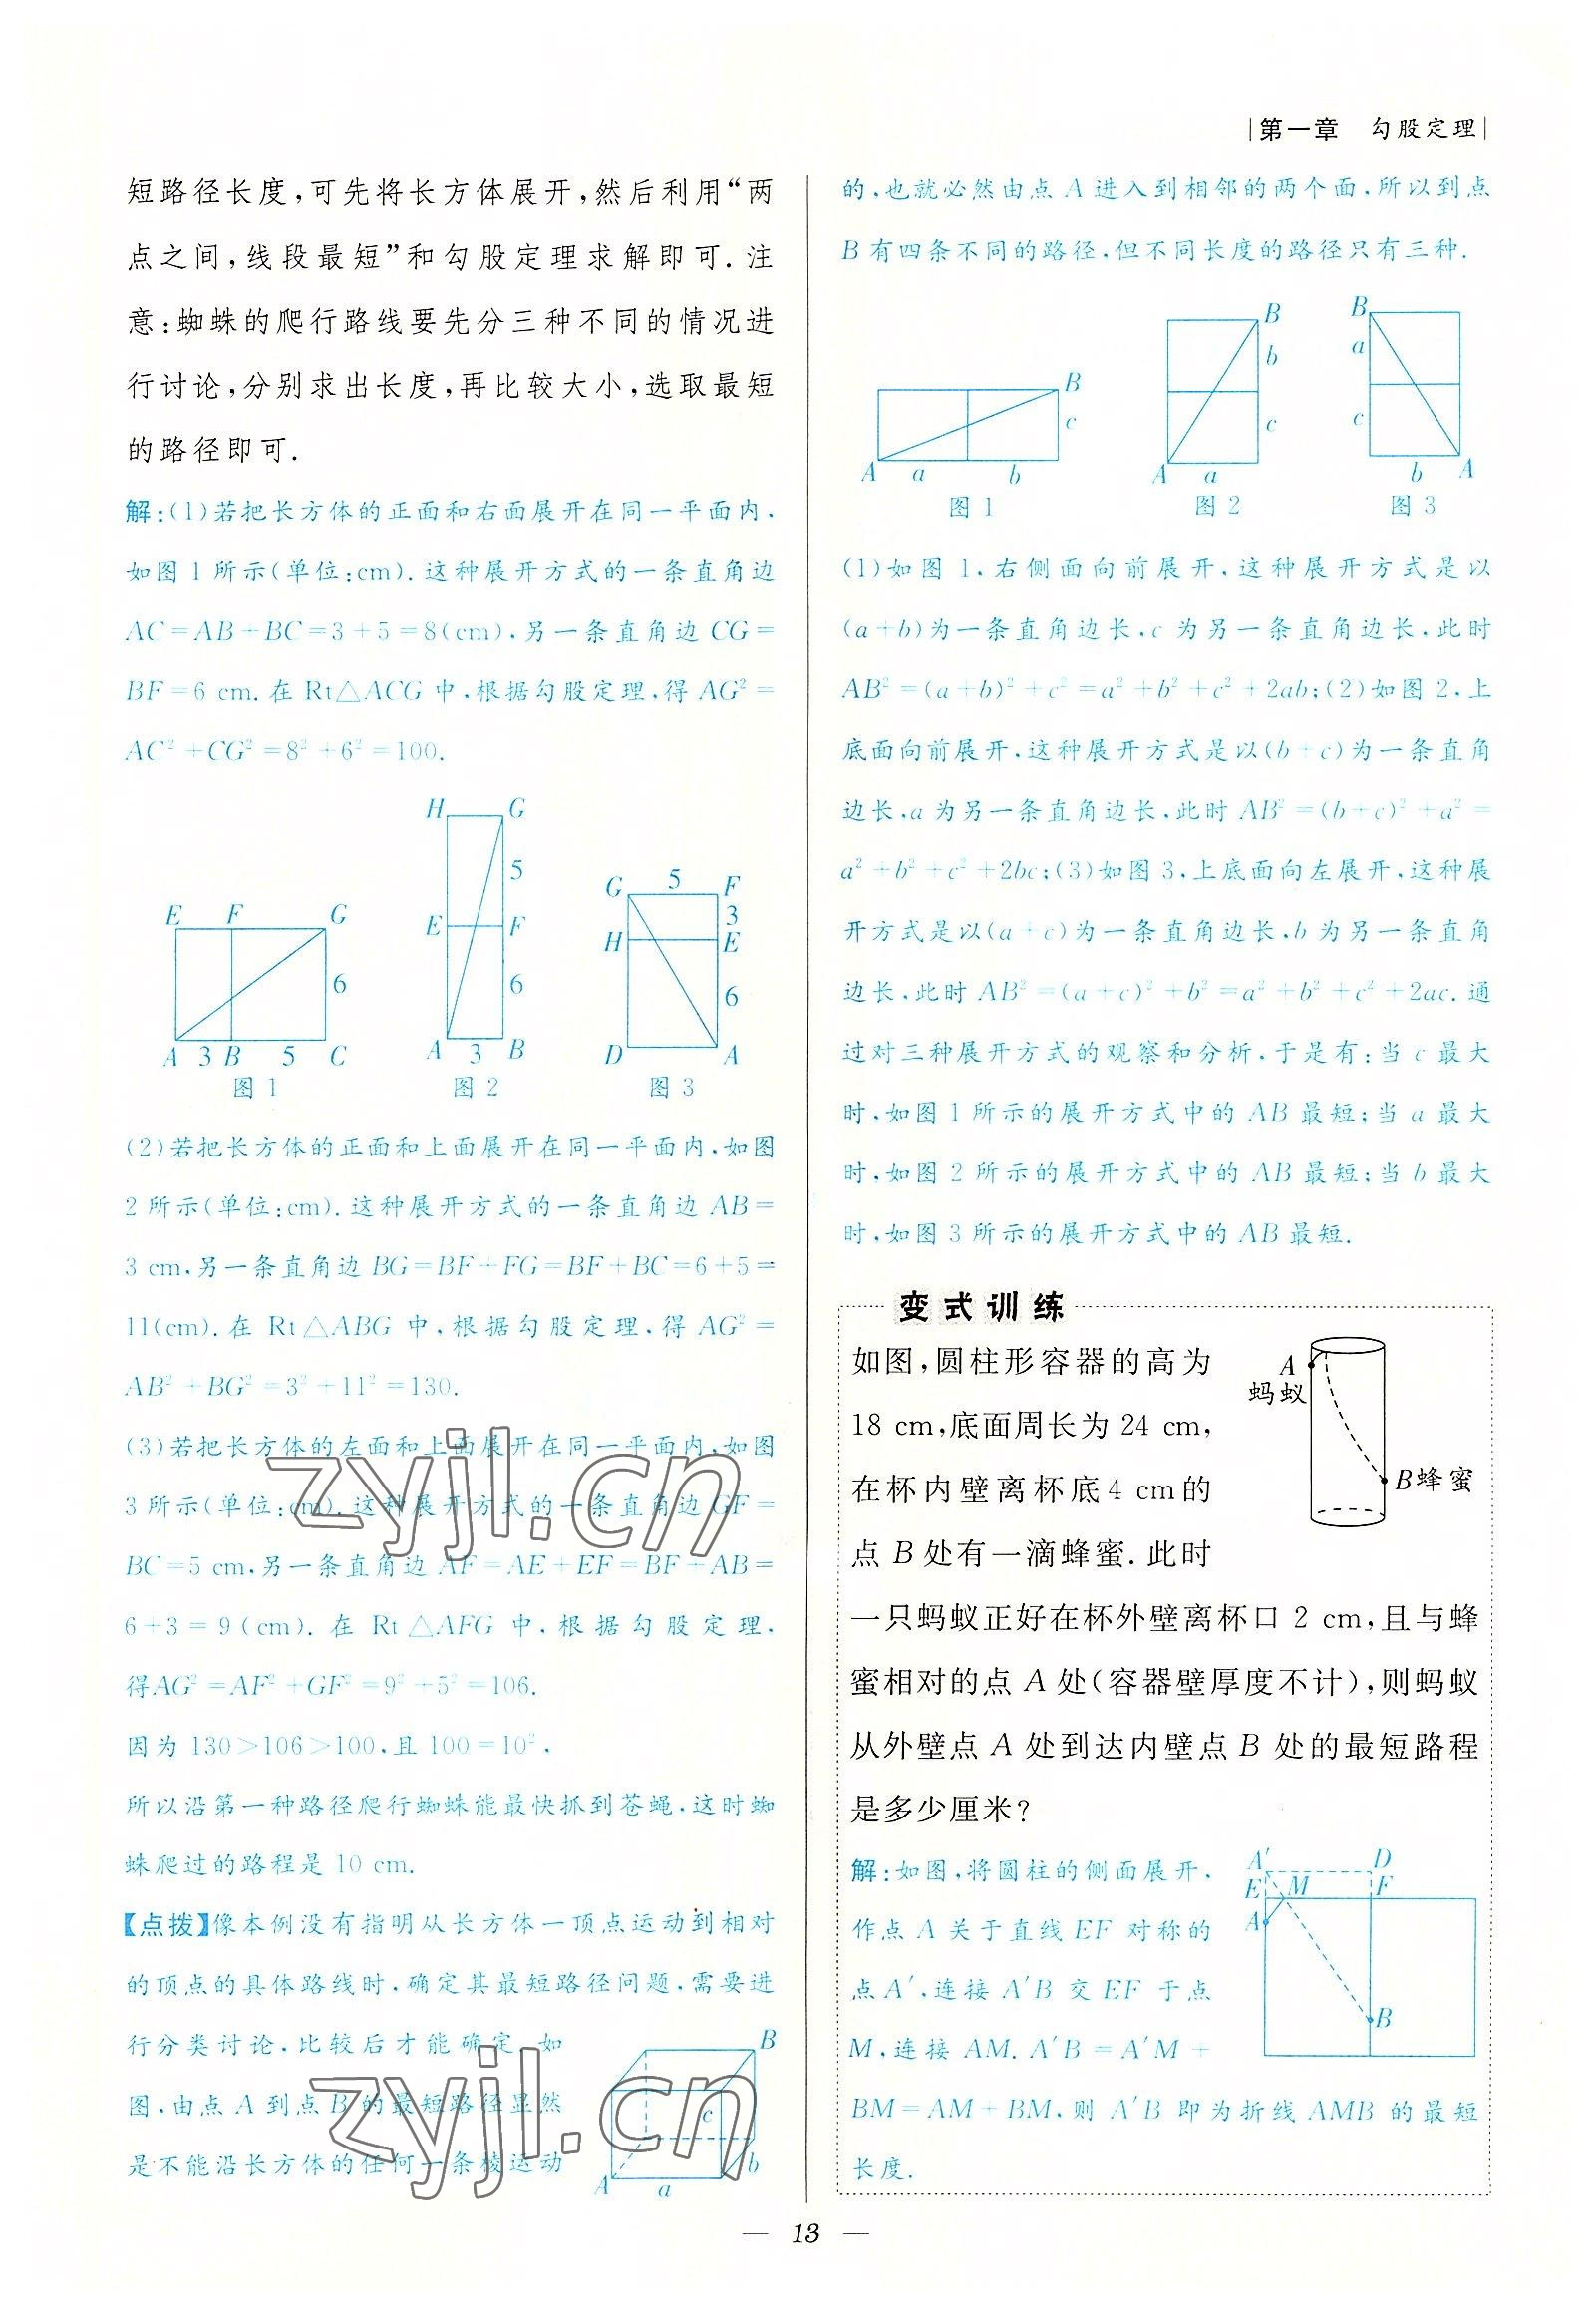 第一章 勾股定理
短路径长度,可先将长方体展开,然后利用“两
点之间,线段最短”和勾股定理求解即可.注
意:蜘蛛的爬行路线要先分三种不同的情况进
行讨论,分别求出长度,再比较大小,选取最短
的路径即可.
解:(1)若把长方体的正面和右面展开在同一平面内,
如图1所示(单位:cm).这种展开方式的一条直角边
AC=AB+BC=3+5=8(cm),另一条直角边CG=
BF=6 cm.在Rt△ACG中,根据勾股定理,得AG²=
AC²+CG²=8²+6²=100.
E F G
6
A 3 B 5 C
图1
H G
5
E F
6
A 3 B
图2
G 5 F
3
H E
6
D A
图3
(2)若把长方体的正面和上面展开在同一平面内,如图
2所示(单位:cm).这种展开方式的一条直角边AB=
3 cm,另一条直角边BG=BF+FG=BF+BC=6+5=
11(cm).在Rt△ABG中,根据勾股定理,得AG²=
AB²+BG²=3²+11²=130.
(3)若把长方体的左面和上面展开在同一平面内,如图
3所示(单位:cm).这种展开方式的一条直角边GF=
BC=5 cm,另一条直角边AF=AE+EF=BF+AB=
6+3=9(cm).在Rt△AFG中,根据勾股定理,
得AG²=AF²+GF²=9²+5²=106.
因为130>106>100,且100=10²,
所以沿第一种路径爬行蜘蛛能最快抓到苍蝇,这时蜘
蛛爬过的路程是10 cm.
【点拨】像本例没有指明从长方体一顶点运动到相对
的顶点的具体路线时,确定其最短路径问题,需要进
行分类讨论,比较后才能确定.如
图,由点A到点B的最短路径显然
是不能沿长方体的任何一条棱运动
B
c
b
A a
的,也就必然由点A进入到相邻的两个面,所以到点
B有四条不同的路径,但不同长度的路径只有三种.
B
c
A a b
图1
B
b
c
A a
图2
B
a
c
b A
图3
(1)如图1,右侧面向前展开,这种展开方式是以
(a+b)为一条直角边长,c为另一条直角边长,此时
AB²=(a+b)²+c²=a²+b²+c²+2ab;(2)如图2,上
底面向前展开,这种展开方式是以(b+c)为一条直角
边长,a为另一条直角边长,此时AB²=(b+c)²+a²=
a²+b²+c²+2bc;(3)如图3,上底面向左展开,这种展
开方式是以(a+c)为一条直角边长,b为另一条直角
边长,此时AB²=(a+c)²+b²=a²+b²+c²+2ac.通
过对三种展开方式的观察和分析,于是有:当c最大
时,如图1所示的展开方式中的AB最短;当a最大
时,如图2所示的展开方式中的AB最短;当b最大
时,如图3所示的展开方式中的AB最短.
变式训练
如图,圆柱形容器的高为
18 cm,底面周长为24 cm,
在杯内壁离杯底4 cm的
点B处有一滴蜂蜜.此时
一只蚂蚁正好在杯外壁离杯口2 cm,且与蜂
蜜相对的点A处(容器壁厚度不计),则蚂蚁
从外壁点A处到达内壁点B处的最短路程
是多少厘米?
A
蚂蚁
B蜂蜜
解:如图,将圆柱的侧面展开,
作点A关于直线EF对称的
点A′,连接A′B交EF于点
M,连接AM.A′B=A′M+
BM=AM+BM,则A′B即为折线AMB的最短
长度.
A′ D
E M F
A
B
zyjl.cn
zyjl.cn
— 13 —